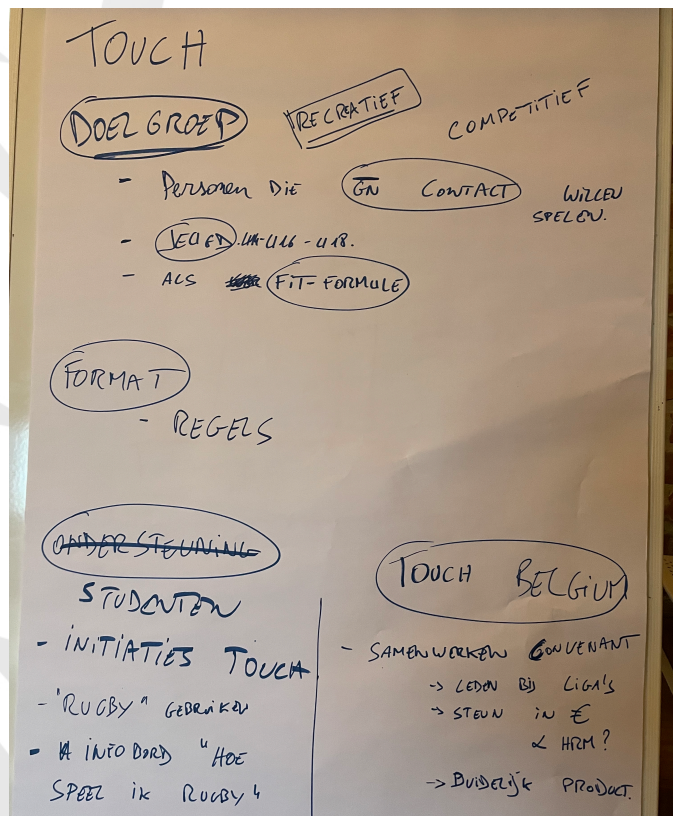 TOUCH
DOELGROEP RECREATIEF COMPETITIEF
- Personen DIE GN CONTACT WILLEN
SPELEN.
- JEUGD. U14-U16-U18.
- ALS FIT-FORMULE
FORMAT
- REGELS
ONDERSTEUNING
STUDENTEN
- INITIATIES TOUCH
- "RUGBY" GEBRUIKEN
- INFOBORD "HOE
SPEEL IK RUGBY"
TOUCH BELGIUM
- SAMENWERKEN CONVENANT
-> LEDEN BIJ LIGA'S
-> STEUN IN €
& HRM?
-> DUIDELIJK PRODUCT.